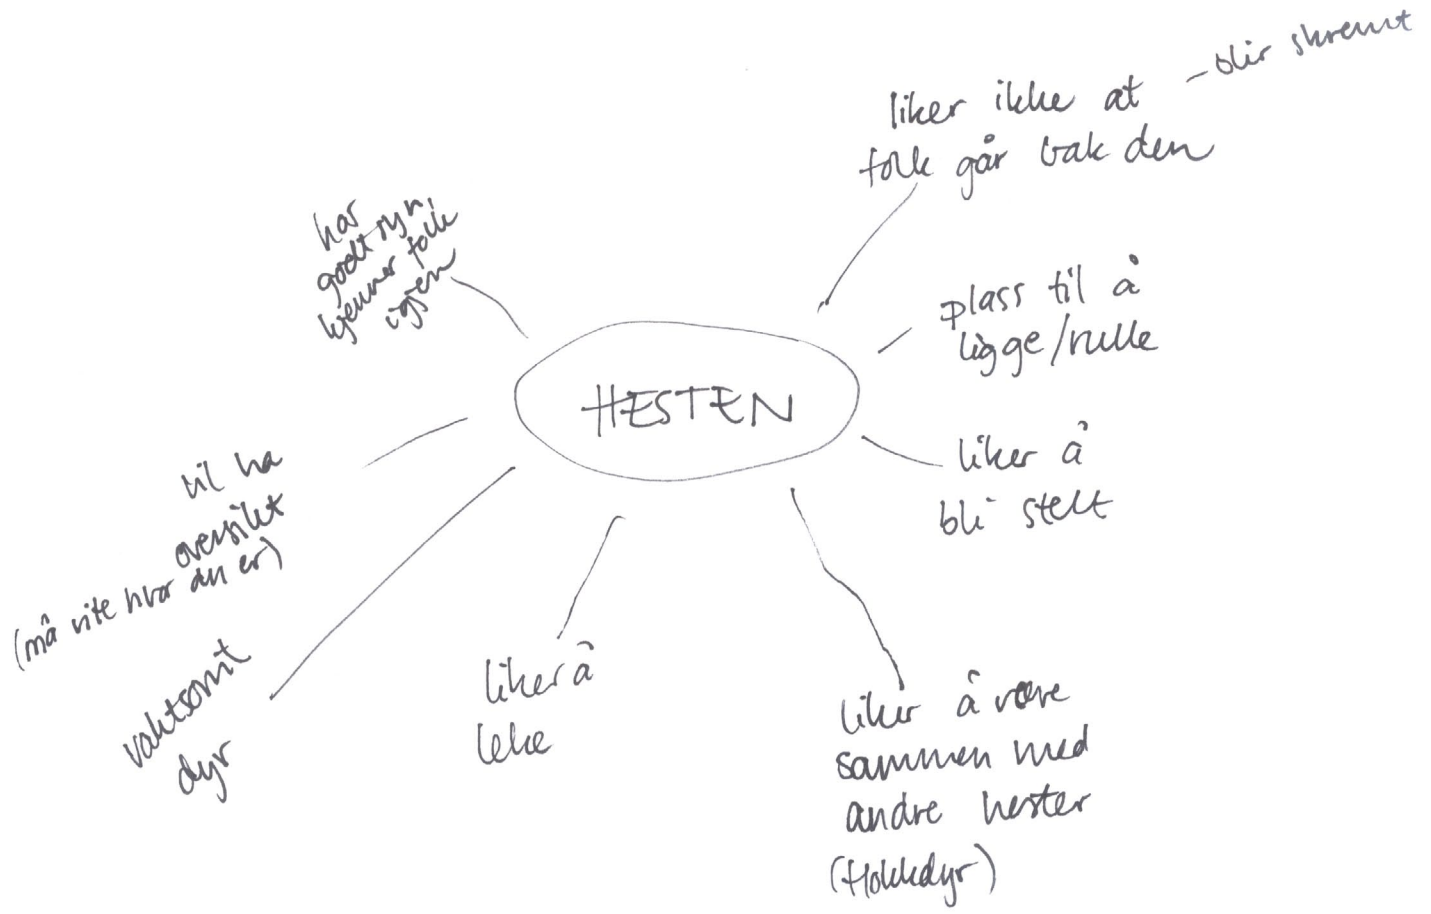 HESTEN
liker ikke at
folk går bak den
- blir skremt
plass til å
ligge/rulle
liker å
bli stelt
liker å være
sammen med
andre hester
(flokkdyr)
liker å
leke
vaktsomt
dyr
vil ha
oversikt
(må vite hvor du er)
har
godt syn,
kjenner folk
igjen